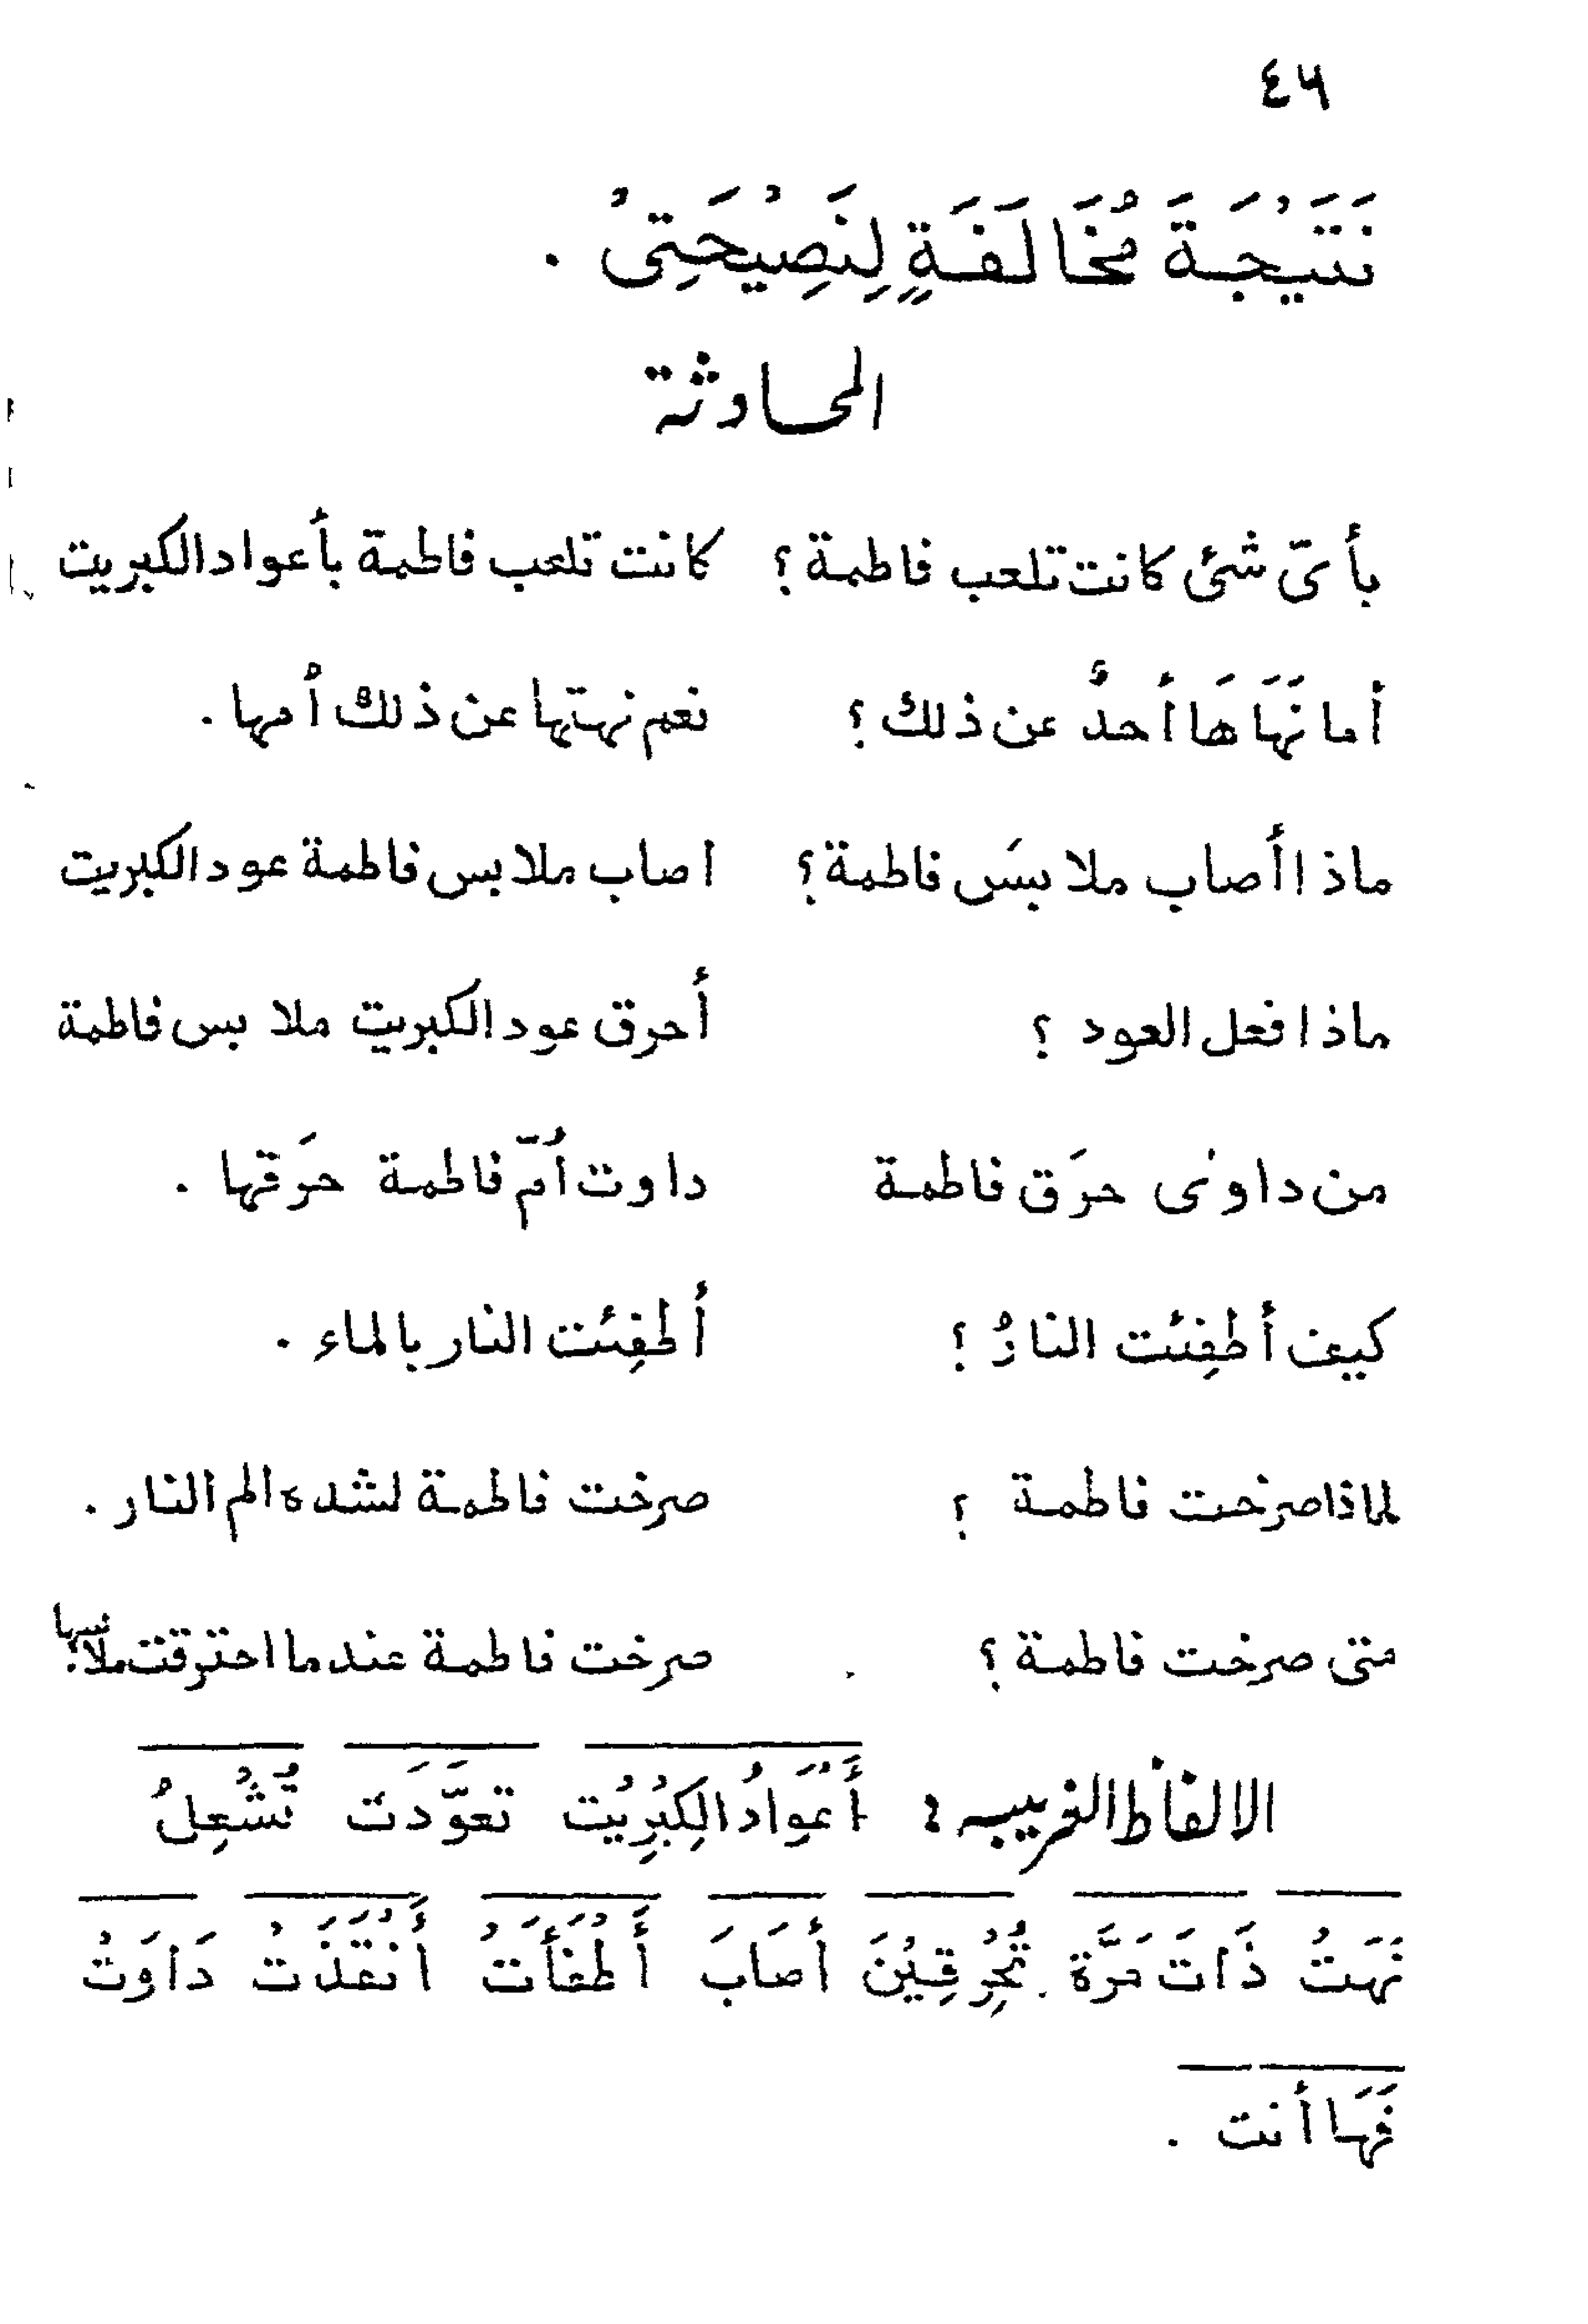 ٤٦
نَتَيْجَةَ مُخَالَفَةٍ لِنَصِيْحَتِىْ .
المحادثة
بأىّ شئ كانت تلعب فاطمة ؟ كانت تلعب فاطمة بأعواد الكبريت
أما نَهَاهَا أحدٌ عن ذلك ؟ نعم نهتها عن ذلك أمها .
ماذا أصاب ملابسَ فاطمة ؟ اصاب ملابس فاطمة عود الكبريت
ماذا فعل العود ؟ أحرق عود الكبريت ملابس فاطمة
من داوىٰ حرَق فاطمة داوت أمّ فاطمة حرَقها .
كيف أطفِئت النارُ ؟ أطفِئت النار بالماء .
لماذا صرخت فاطمة ؟ صرخت فاطمة لشده الم النار .
متى صرخت فاطمة ؟ صرخت فاطمة عندما احترقت ملابسها
الالفاظ الغريبه : أَعْوَادُ الكِبْرِيْت تعوَّدَت تُشْعِلُ
نَهَتْ ذَاتَ مَرَّة . تُحْرِقِيْنَ أصَابَ أَطْفَأَتْ أَنْقَذَتْ دَاوَتْ
فَهَا أنت .